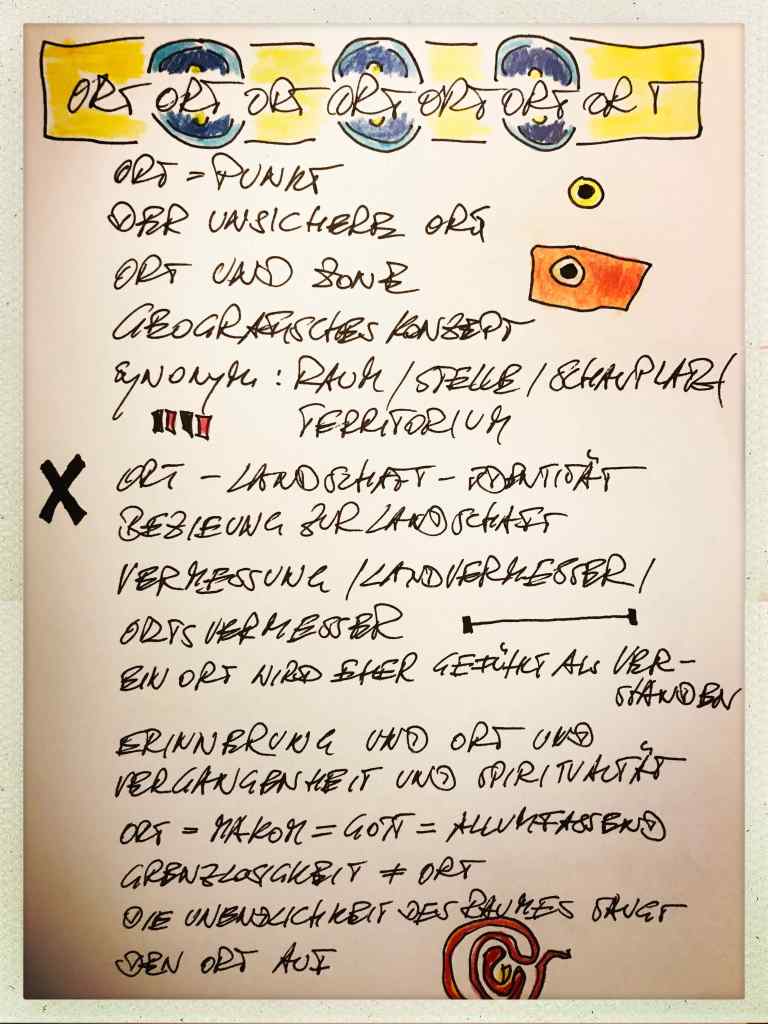 ORT ORT ORT ORT ORT ORT ORT
ORT = PUNKT
DER UNSICHERE ORT
ORT UND ZONE
GEOGRAFISCHES KONZEPT
SYNONYM : RAUM / STELLE / SCHAUPLATZ /
TERRITORIUM
X ORT - LANDSCHAFT - IDENTITÄT
BEZIEUNG ZUR LANDSCHAFT
VERMESSUNG / LANDVERMESSER /
ORTSVERMESSER
EIN ORT WIRD EHER GEFÜHLT ALS VER-
STANDEN
ERINNERUNG UND ORT UND
VERGANGENHEIT UND SPIRITUALTÄT
ORT = MAKOM = GOTT = ALLUMFASSEND
GRENZLOSIGKEIT ≠ ORT
DIE UNENDLICHKEIT DES RAUMES SAUGT
DEN ORT AUF